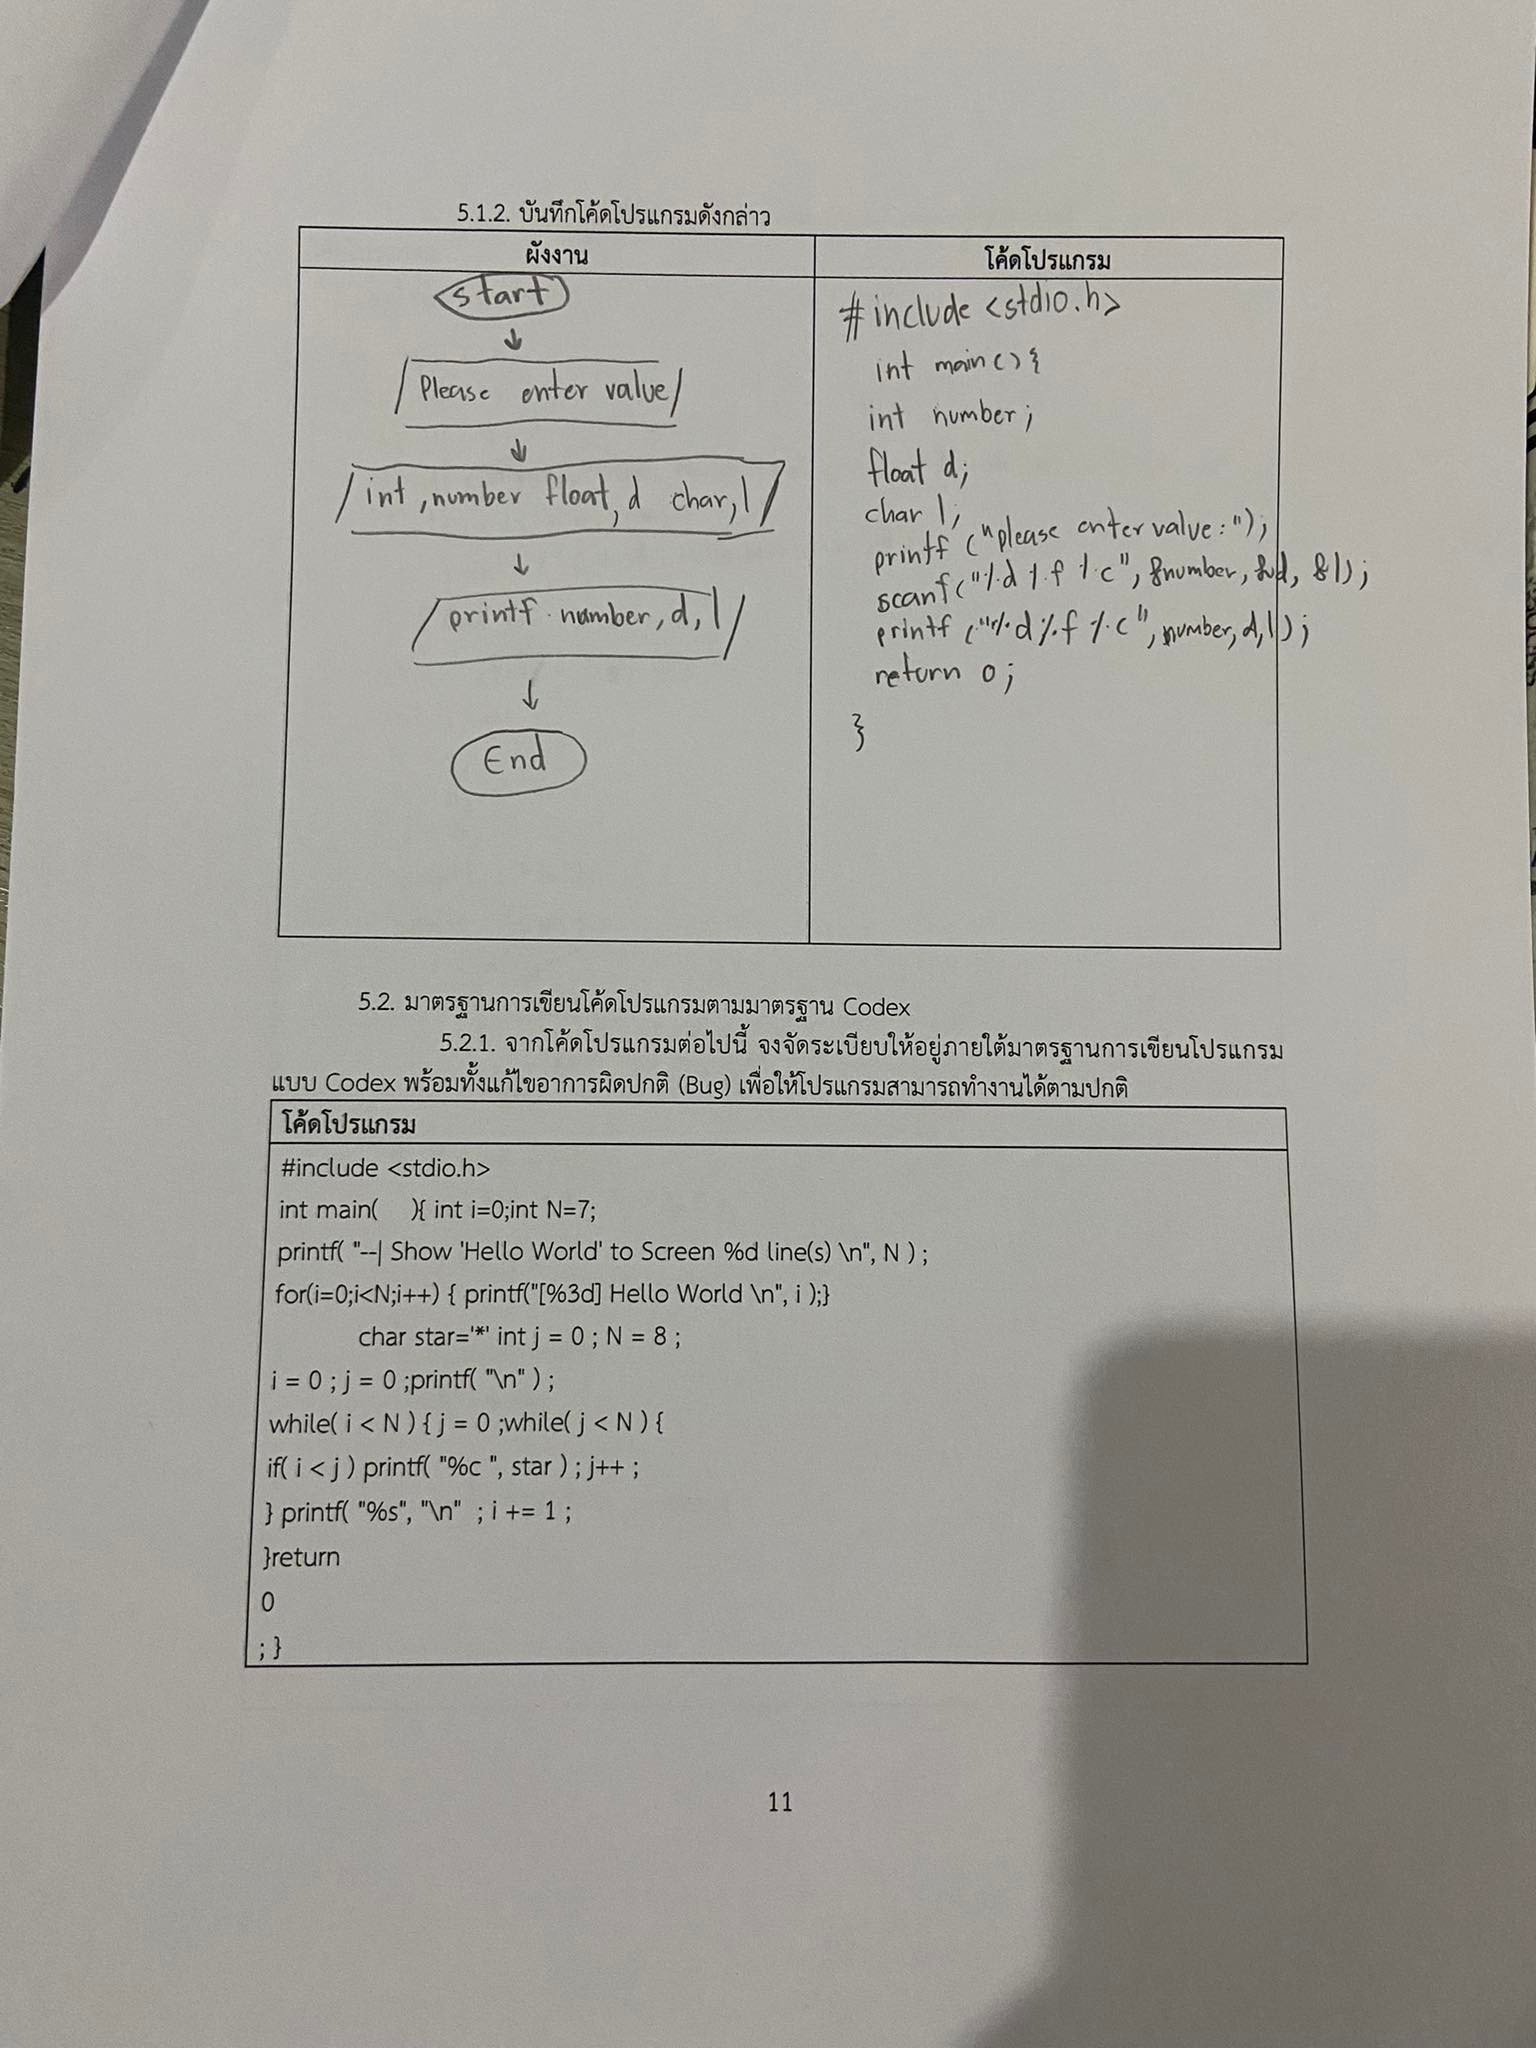 5.1.2. บันทึกโค้ดโปรแกรมดังกล่าว
ผังงาน
โค้ดโปรแกรม
start
Please enter value
int, number float, d char, l
printf number, d, l
End
#include <stdio.h>
int main() {
int number;
float d;
char l;
printf ("please enter value: ");
scanf("%d %f %c", &number, &d, &l);
printf ("%d %f %c", number, d, l);
return 0;
}
5.2. มาตรฐานการเขียนโค้ดโปรแกรมตามมาตรฐาน Codex
5.2.1. จากโค้ดโปรแกรมต่อไปนี้ จงจัดระเบียบให้อยู่ภายใต้มาตรฐานการเขียนโปรแกรม
แบบ Codex พร้อมทั้งแก้ไขอาการผิดปกติ (Bug) เพื่อให้โปรแกรมสามารถทำงานได้ตามปกติ
โค้ดโปรแกรม
#include <stdio.h>
int main(    ){ int i=0;int N=7;
printf( "--| Show 'Hello World' to Screen %d line(s) \n", N ) ;
for(i=0;i<N;i++) { printf("[%3d] Hello World \n", i );}
char star='*' int j = 0 ; N = 8 ;
i = 0 ; j = 0 ;printf( "\n" ) ;
while( i < N ) { j = 0 ;while( j < N ) {
if( i < j ) printf( "%c ", star ) ; j++ ;
} printf( "%s", "\n"  ; i += 1 ;
}return
0
; }
11